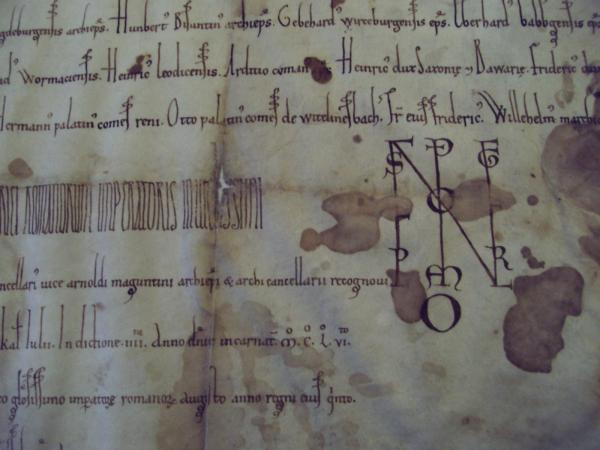 gdeburgensis archieps. Hunbert Bisuntin archieps. Gebehard wirceburgensis eps. Eberhard babbgensis eps
Wormaciensis. Heinric leodicensis. Arduio coman Heinric dux Saxonie & Bawarie. frideric dux
Hermann palatin comes reni. Otto palatin comes de witelinesbach. Fr eius frideric. Willehelm marchio
IMPERATORIS
ncellari uice arnoldi maguntini archiepi & archicancellarii recognoui.
kal iulii. Indictione. iiii. Anno dnice incarnat. M. C. L. VI.
gliosissimo imperatore romanor augusto anno regni eius qinto.